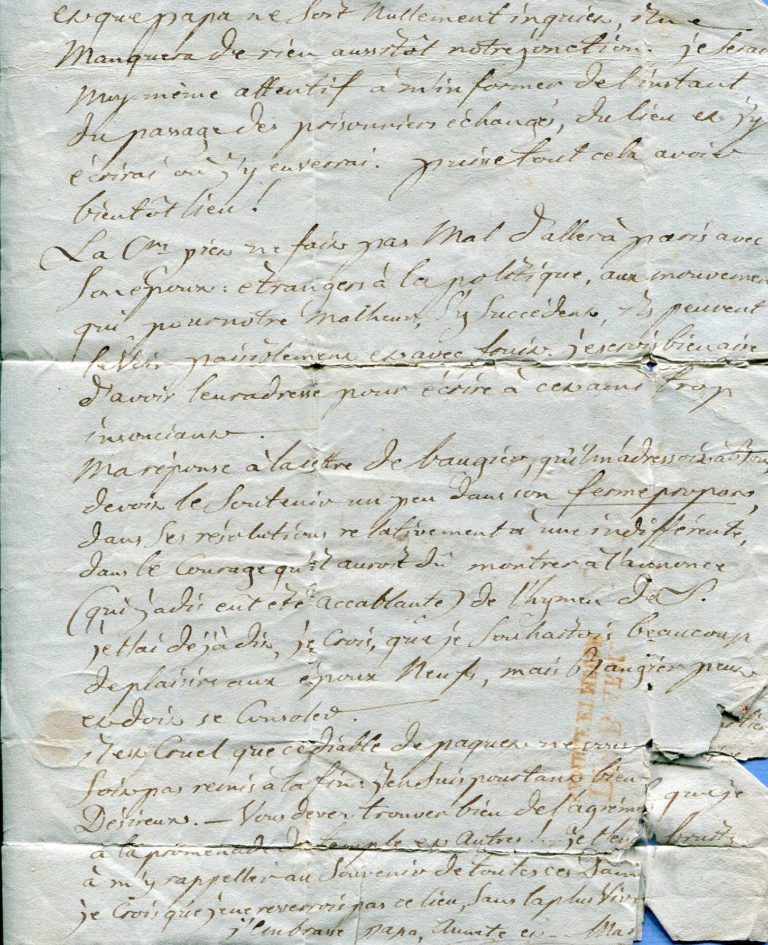 et que papa ne soit nullement inquiet, il ne
manquera de rien aussitôt notre jonction. je serai
moy même attentif à m'informer de l'instant
du passage des prisonniers échangés, du lieu et j'y
écrirai ou j'y enverrai. puisse tout cela avoir
bientôt lieu!
La Cne ne fait pas mal d'aller à paris avec
son époux: étrangers à la politique, aux mouvemen
qui, pour notre malheur, s'y succèdent, ils peuvent
le voir paisiblement et avec fruit. je serois bien aise
d'avoir leur adresse pour écrire à ces amis trop
insouciants.
Ma réponse à la lettre de baugier, qu'il m'adressoit à
devoit le soutenir un peu dans son ferme propos,
dans ses résolutions relativement à une indifférente,
dans le courage qu'il auroit dû montrer à l'annonce
(qui jadis eut été accablante) de l'hymen de S.
je t'ai déjà dit, je crois, que je souhaitois beaucoup
de plaisirs aux époux neufs, mais Baugier peut
et doit se consoler.
il est cruel que ce diable de paquet ne vous
soit pas remis à la fin: j'en suis pourtant bien
Désireux. — Vous devez trouver bien de l'agrém que je
à la promenade du temple et autres!
à m'y rappeller au souvenir de toutes ces Dam
je crois que je ne reverrois pas ce lieu, sans la plus vive
j'embrasse papa, Annete et Ma